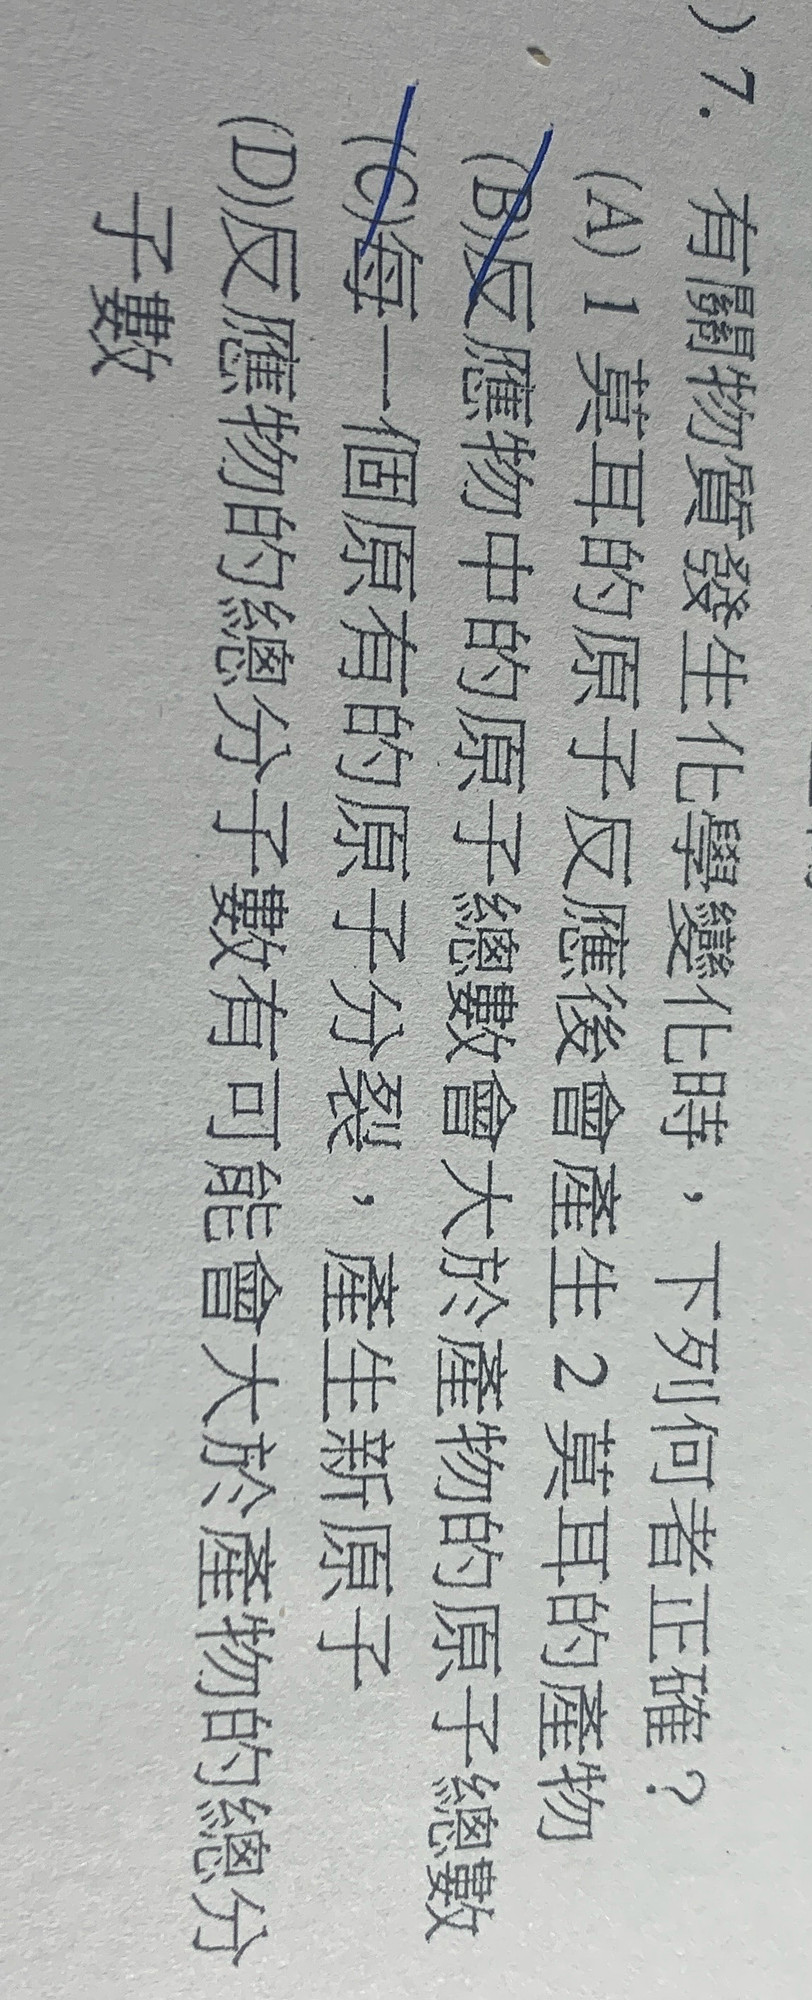 )7. 有關物質發生化學變化時，下列何者正確？
(A) 1 莫耳的原子反應後會產生 2 莫耳的產物
(B)反應物中的原子總數會大於產物的原子總數
(C)每一個原有的原子分裂，產生新原子
(D)反應物的總分子數有可能會大於產物的總分
子數